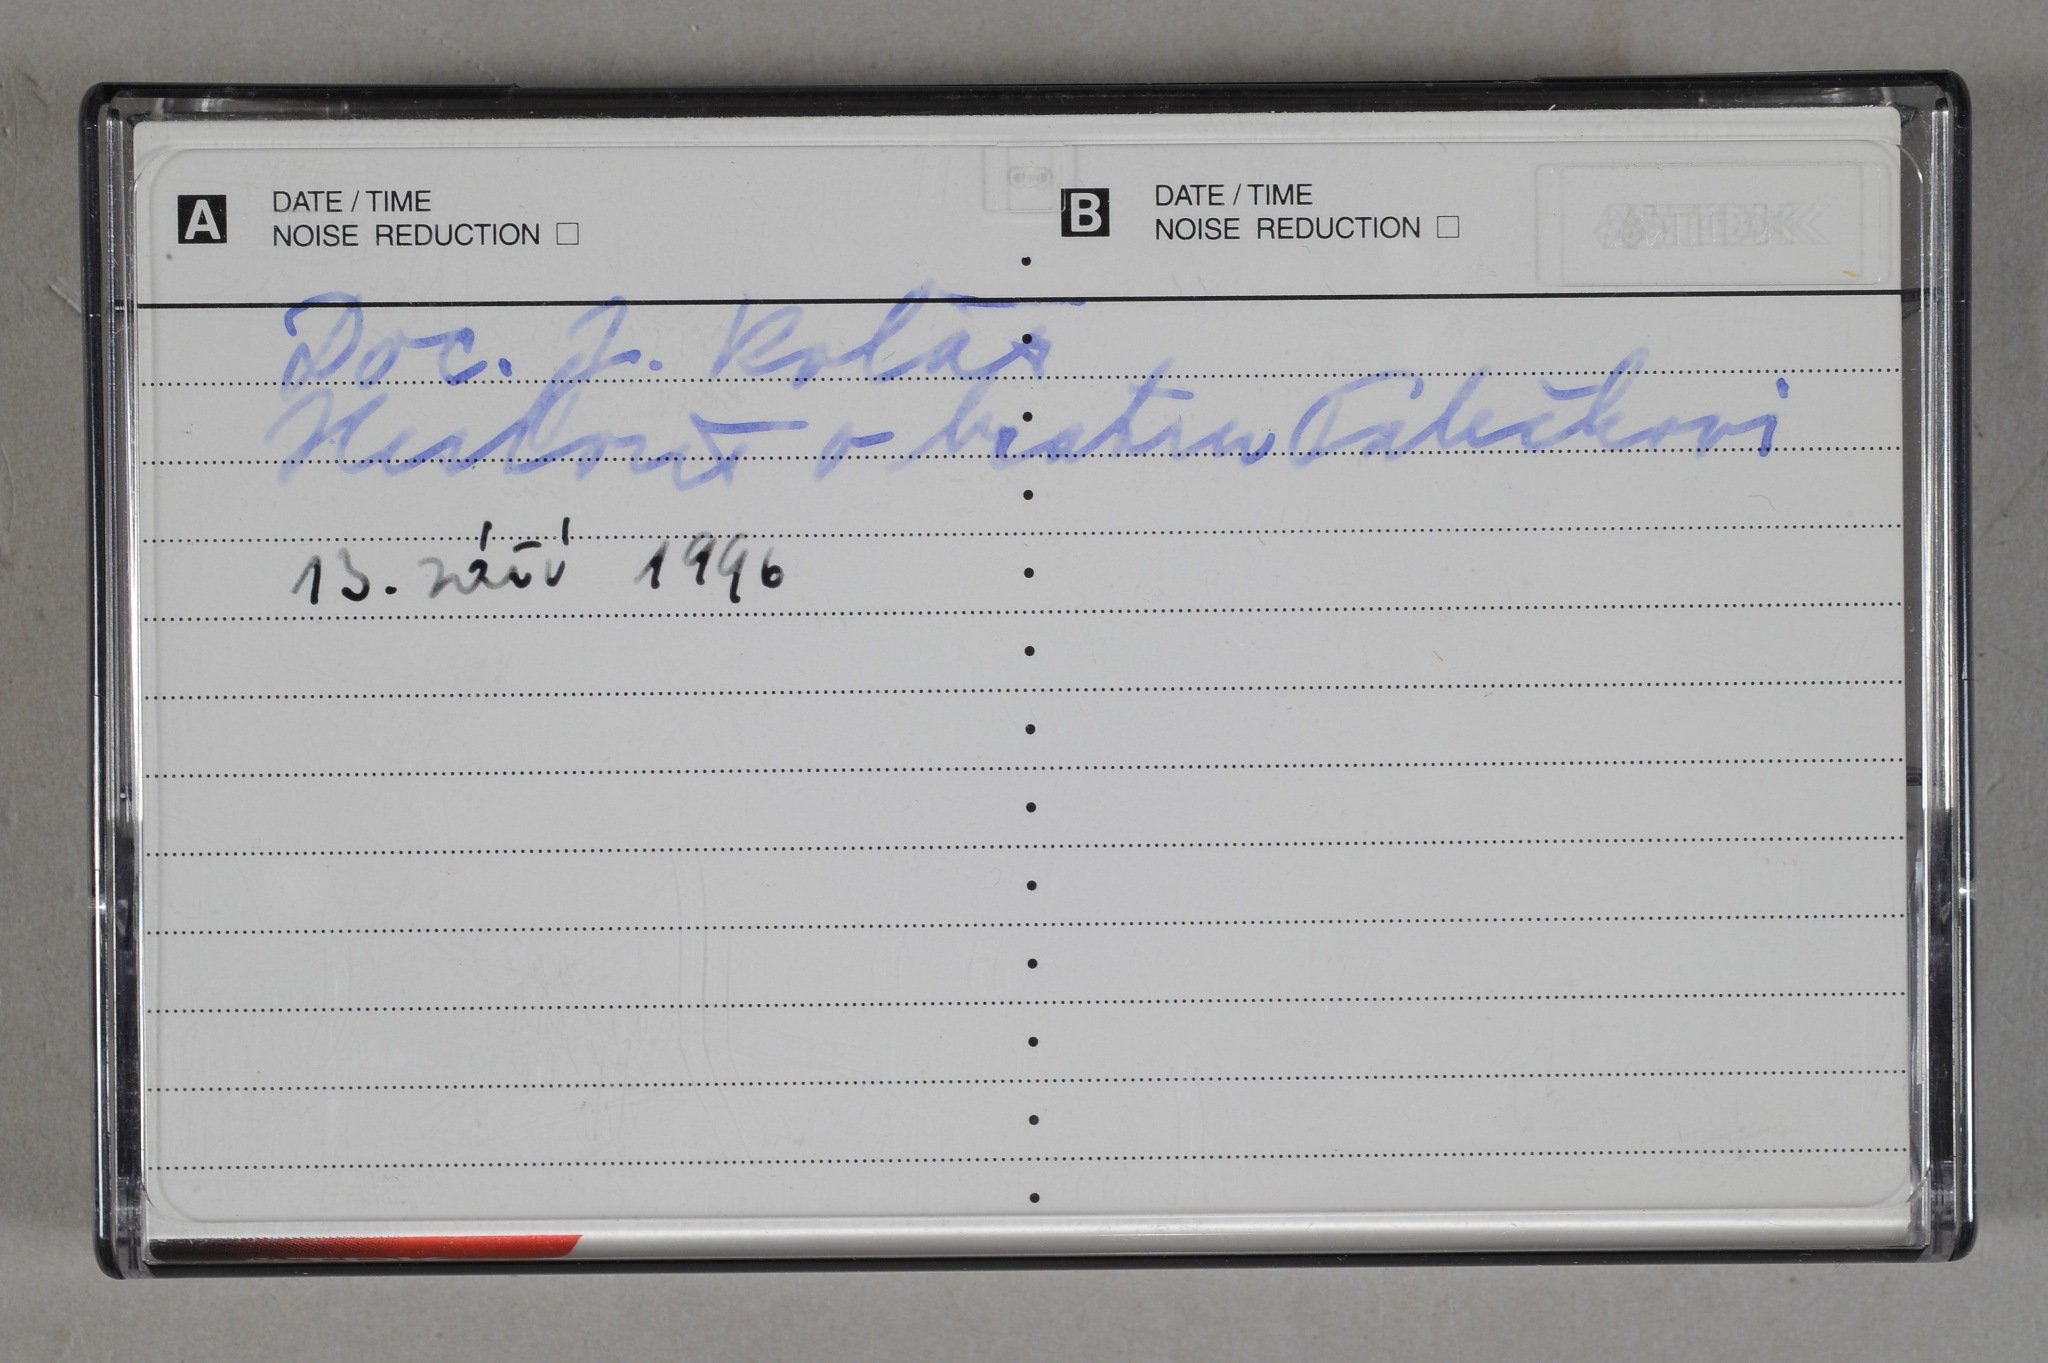 A DATE / TIME
NOISE REDUCTION
B DATE / TIME
NOISE REDUCTION
Doc. J. Kolář
o bratru Pálečkovi
13. září 1996